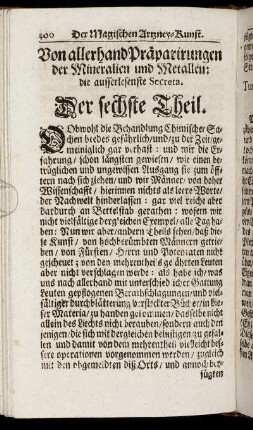 300 Der Magischen Artzney-Kunst.
Von allerhand Präparirungen
der Mineralien und Metallen:
die ausserlesenste Secreta.
Der sechste Theil.
Obwohl die Behandlung Chimischer Sa-
chen beedes gefährlich/und/zu der Zeit/ge-
meiniglich gar verhast: und wir die Er-
fahrung/ schon längsten gewiesen/ wie einen be-
trüglichen und ungewissen Ausgang sie zum öff-
tern nach sich ziehen/ und wir Männer/ von hoher
Wissenschafft/ hierinnen nichts als leere Worte/
der Nachwelt hinderlassen: gar viel reiche aber
dardurch an Bettelstab gerathen: wofern wir
nicht vielfältige dergleichen Exempel/ alle Tag ha-
ben: Nun wir aber/andern Theils sehen/daß die-
se Kunst/ von hochberühmten Männern getrie-
ben/ von Fürsten/ Herrn und Potentaten nicht
gescheuet; von den mehrentheils gelährten Leuten
aber nicht verschlagen werde: als habe ich/ was
uns nach allerhand mit unterschiedlicher Gattung
Leuten gepflogenen Berathschlagungen/und viel-
fältiger durchblätterung verstellter Bücher/in die-
ser Materia/ zu handen gekommen/ dasselbe nicht
allein des Liechts nicht berauben/sondern auch den
jenigen/ die sich mit dergleichen belustigen/ zu gefal-
len und damit von dem mehrentheil vielleicht bes-
sere operationen vorgenommen werden/ zugleich
mit den obgemeldten diß Orts/ und annoch bey-
fügten